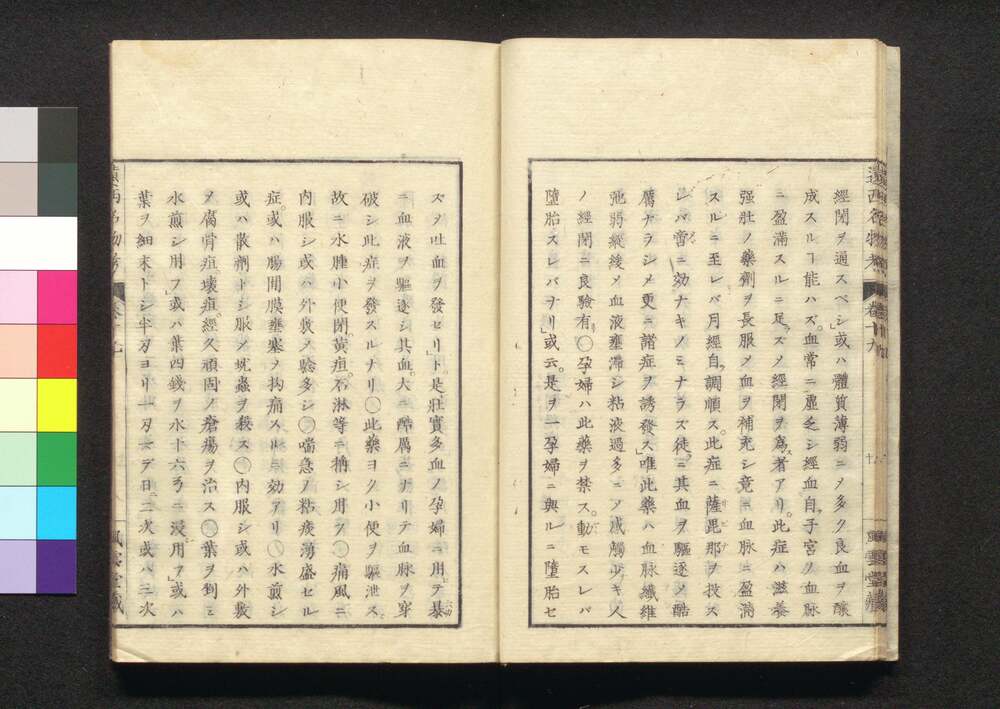 經閉ヲ通スベシ或ハ體質薄弱ニメ多ク良血ヲ釀
成スルヿ能ハズ。血常ニ虛乏シ經血自ラ子宮ノ血脉
ニ盈滿スルニ足ラズメ經閉ヲ為ス者アリ。此症ハ滋養
強壯ノ藥劑ヲ長服メ血ヲ補充シ竟ニ血脉ニ盈滿
スルニ至レバ月經自ラ調順ス。此症ニ薩毘那ヲ投ス
レバ啻ニ効ナキノミナラズ徒ニ其血ヲ驅逐メ酷
厲ナラシメ更ニ諸症ヲ誘發ス唯此藥ハ血脉纖維
弛弱縱緩メ血液壅滯シ粘液過多ニメ感觸少キ人
ノ經閉ニ良驗有リ○孕婦ハ此藥ヲ禁ス。動モスレバ
墮胎スレバナリ」或云。是ヲ一孕婦ニ與ルニ墮胎セ
ズメ吐血ヲ發セリ」ト。是壯實多血ノ孕婦ニ用テ暴
ニ血液ヲ驅逐シ其血大ニ酷厲ニナリテ血脉ヲ穿
破シ此症ヲ發スルナリ○此藥ヨク小便ヲ驅泄ス
故ニ水腫小便閉黃疸。石淋等ニ撰シ用フ○痛風ニ
内服シ或ハ外敷メ驗多シ○喘急ノ粘痰湧盛セル
症。或ハ腸間膜壅塞メ拘痛スルニ効アリ○水煎シ
或ハ散劑トシ服メ蚘蟲ヲ殺ス○内服シ或ハ外敷
メ腐骨疽壊疽。經久頑固ノ瘡瘍ヲ治ス○葉ヲ剉ミ
水煎シ用フ」或ハ葉四錢ヲ水十六弓ニ浸用フ」或ハ
葉ヲ細末トシ半刃ヨリ一刃マデ日ニ二次或ハ三次
遠西名物考
卷十九
風雲堂藏